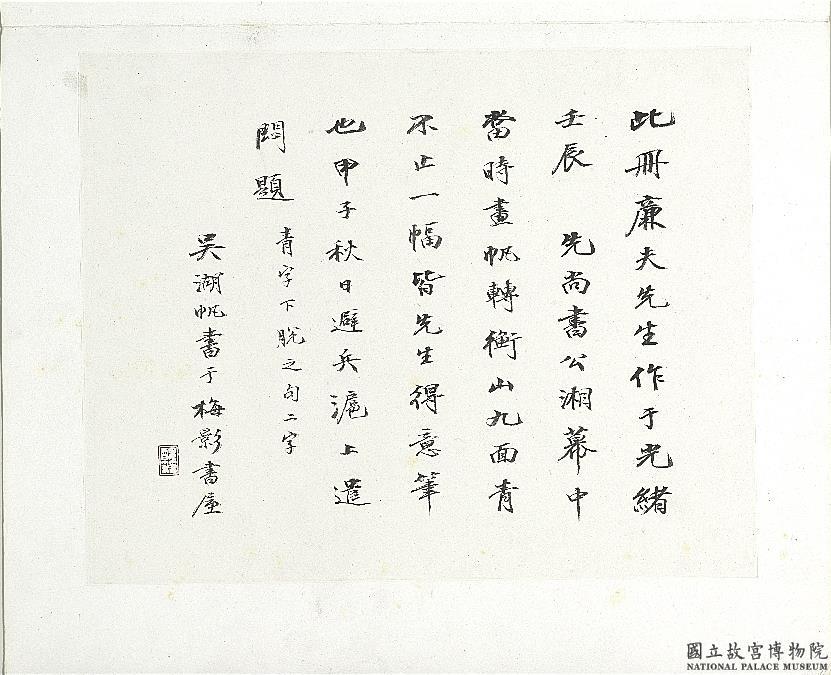 此冊廉夫先生作于光緒
壬辰　先尚書公湘幕中
當時畫帆轉衡山九面青
不止一幅皆先生得意筆
也甲子秋日避兵滬上遣
悶題　青字下脫之句二字
吳湖帆書于梅影書屋
國立故宮博物院
NATIONAL PALACE MUSEUM